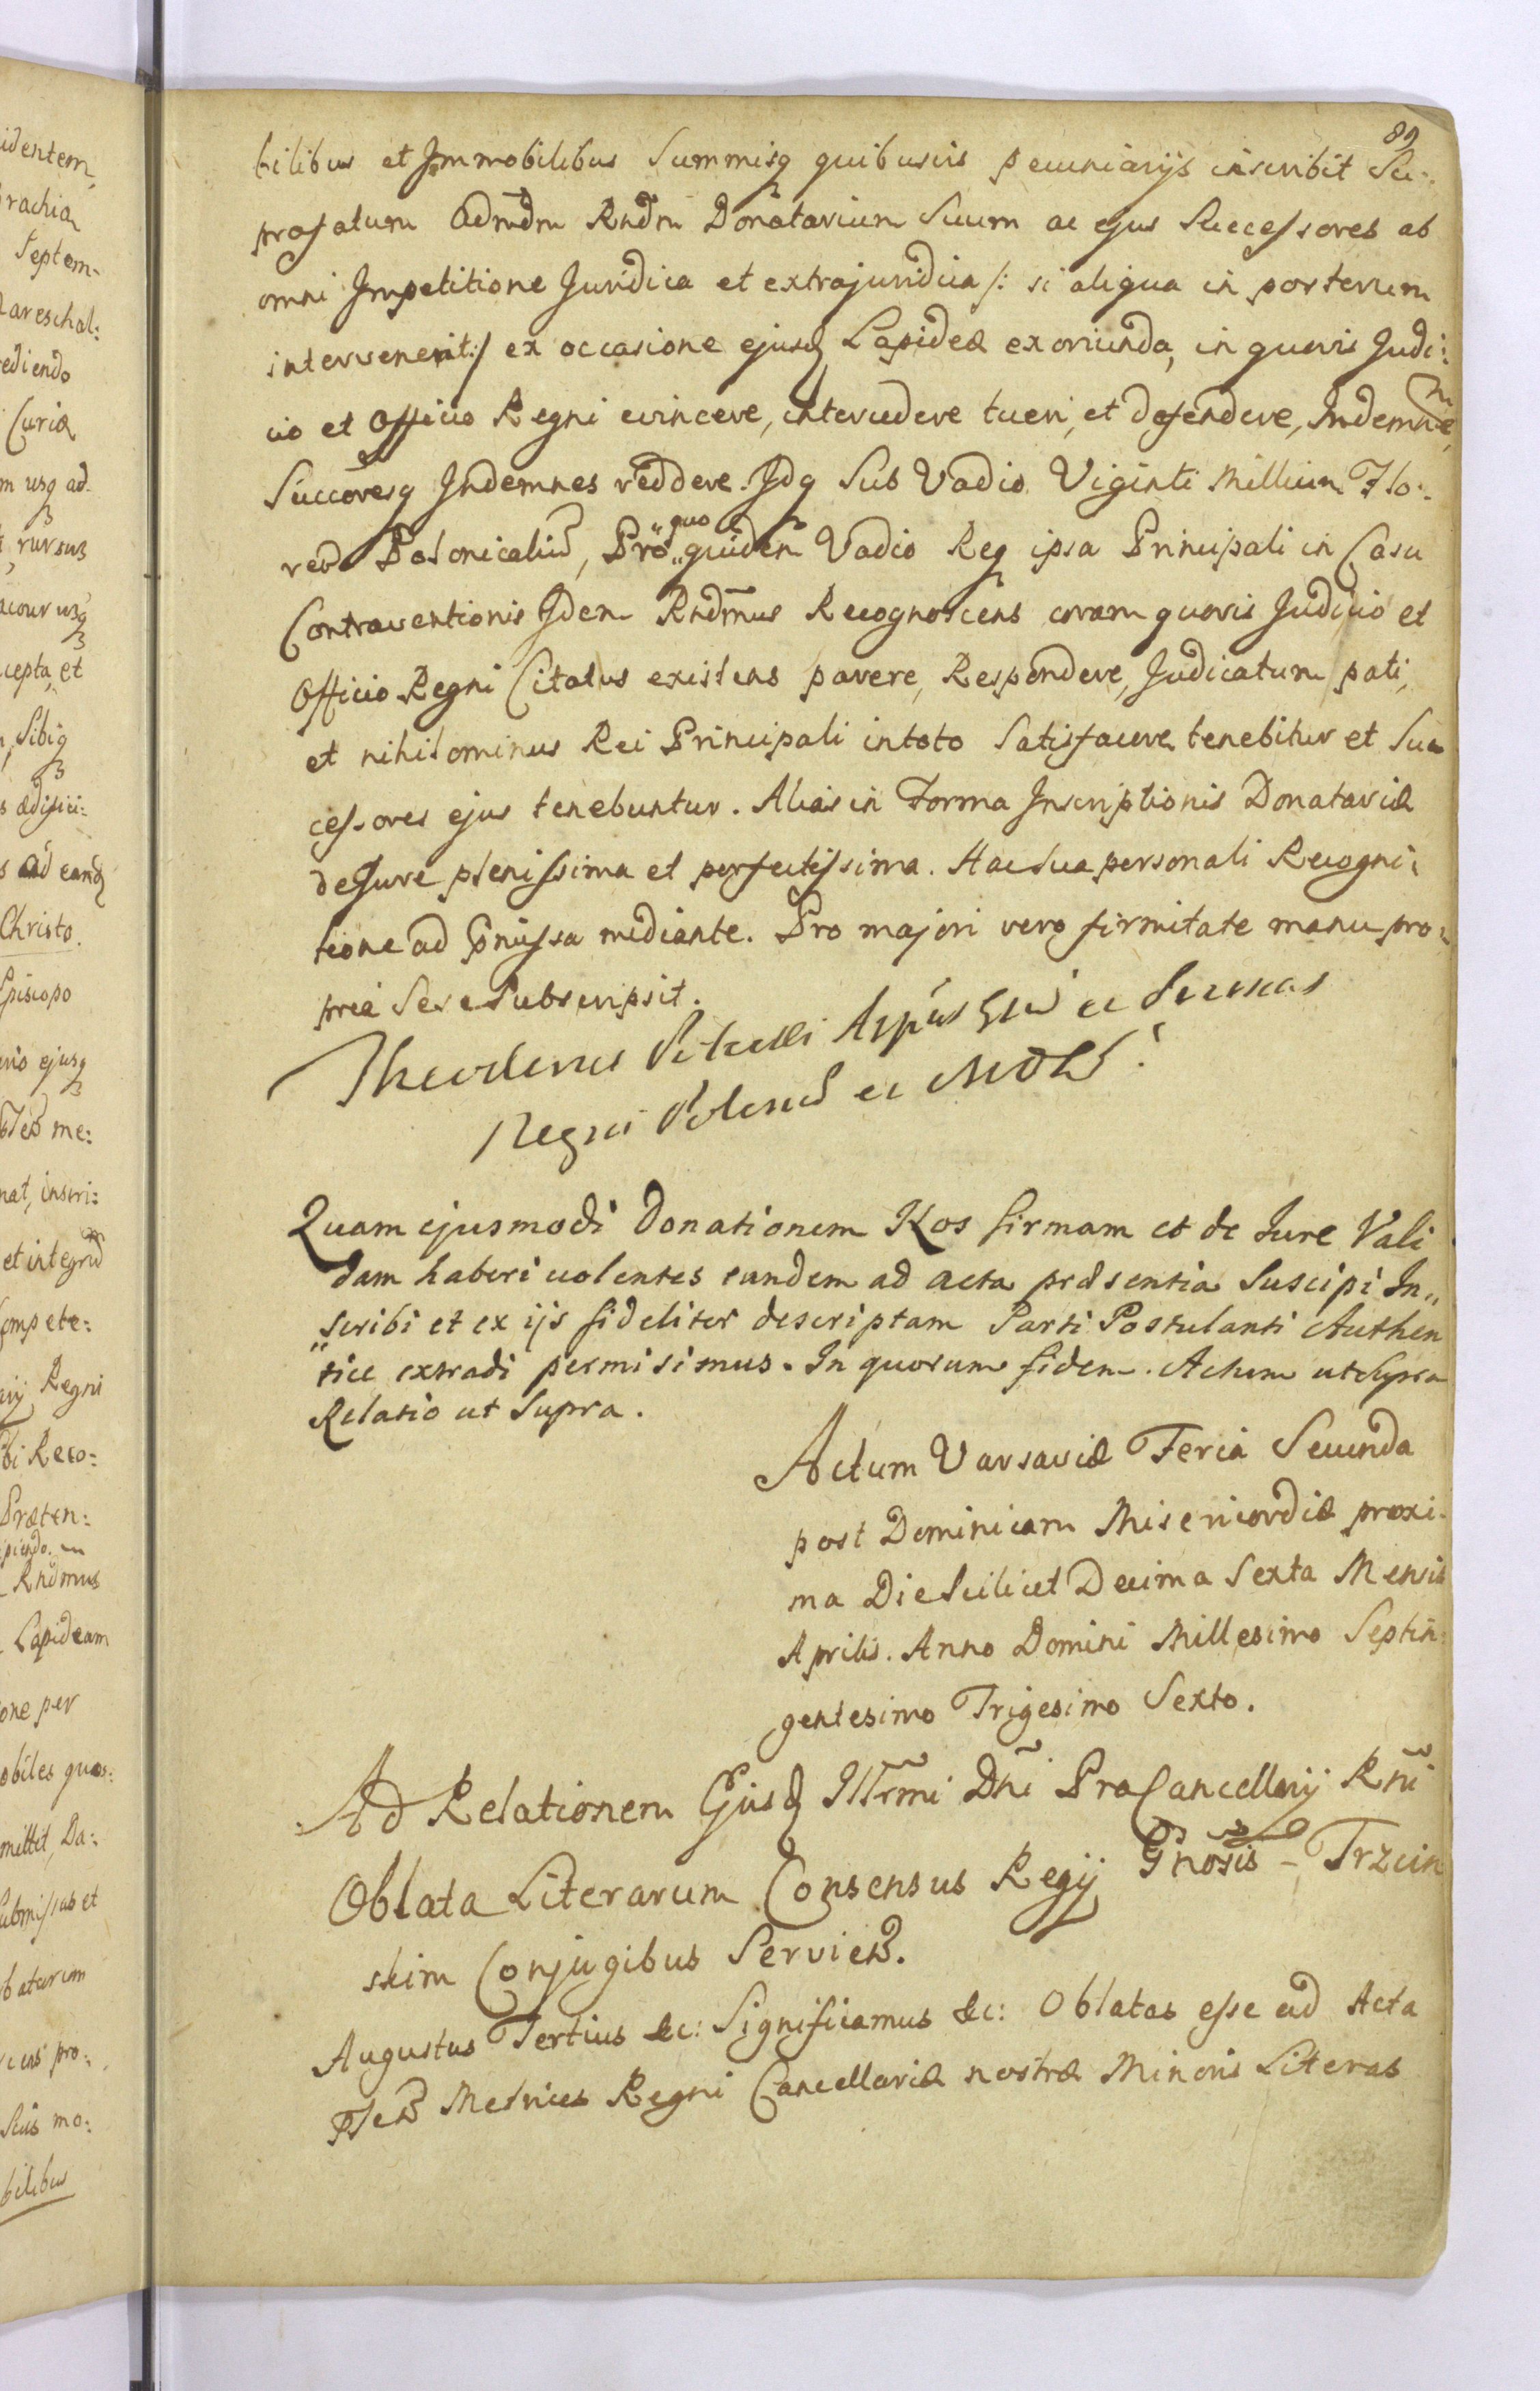 89
bilibus et Immobilibus Summisq quibusvis pecuniarijs inscribit Su:
prafatum Admdm Rndm Donatarium Suum ac ejus Successores ab
omni Impetitione Juridica et extrajuridica /: si aliqua in posterum
intervenerit :/ ex occasione ejusd Lapideæ exoriunda, in quovis Judi:
cio et Officio Regni evincere, intercedere tueri, et defendere, Indemne,
Succoresq Indemnes reddere. Idq Sub Vadio Viginti Millium Flo:
ren Polonicaliu, Pro quo quidem Vadio Req ipsa Principali in Casu
Contraventionis Idem Rndmus Recognoscens coram quovis Judicio et
Officio Regni Citatus existens parere, Respondere, Judicatum pati,
et nihilominus Rei Principali intoto Satisfacere tenebitur et Suc
cessores ejus tenebuntur. Alias in Forma Inscriptionis Donatariæ
de Jure plenissima et perfectissima. Hac sua personali Recogni:
tione ad Pmissa mediante. Pro majori vero firmitate manu pro:
pria Sese Subscripsit.
Theodorus Potocki
Regni
Quam ejusmodi Donationem Nos firmam et de Jure Vali
dam haberi volentes eandem ad acta præsentia Suscipi In,,
,,scribi et ex ijs fideliter descriptam Parti Postulanti Authen
tice extradi permisimus. In quorum fidem. Actum ut Supra
Relatio ut Supra.
Actum Varsaviæ Feria Secunda
post Dominicam Misericordiæ proxi:
ma Die Scilicet Decima Sexta Mensis
Aprilis. Anno Domini Millesimo Septin:
gentesimo Trigesimo Sexto.
Ad Relationem Ejusd Illrmi Dni ProCancellarij Rni
Oblata Literarum Consensus Regij Gnosis - Trzcin
skim Conjugibus Servien.
Augustus Tertius &c: Significamus &c: Oblatas esse ad Acta
Pten Metrices Regni Cancellariæ nostræ Minoris Literas